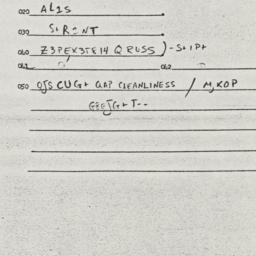 020 AL1S
030 S+R=NT
040 Z3PEX3TE14 Q RUSS)-S+1P+
041 042
050 OJS CUG+ QAP CLEANLINESS / MJKOP
GEEJG+T--